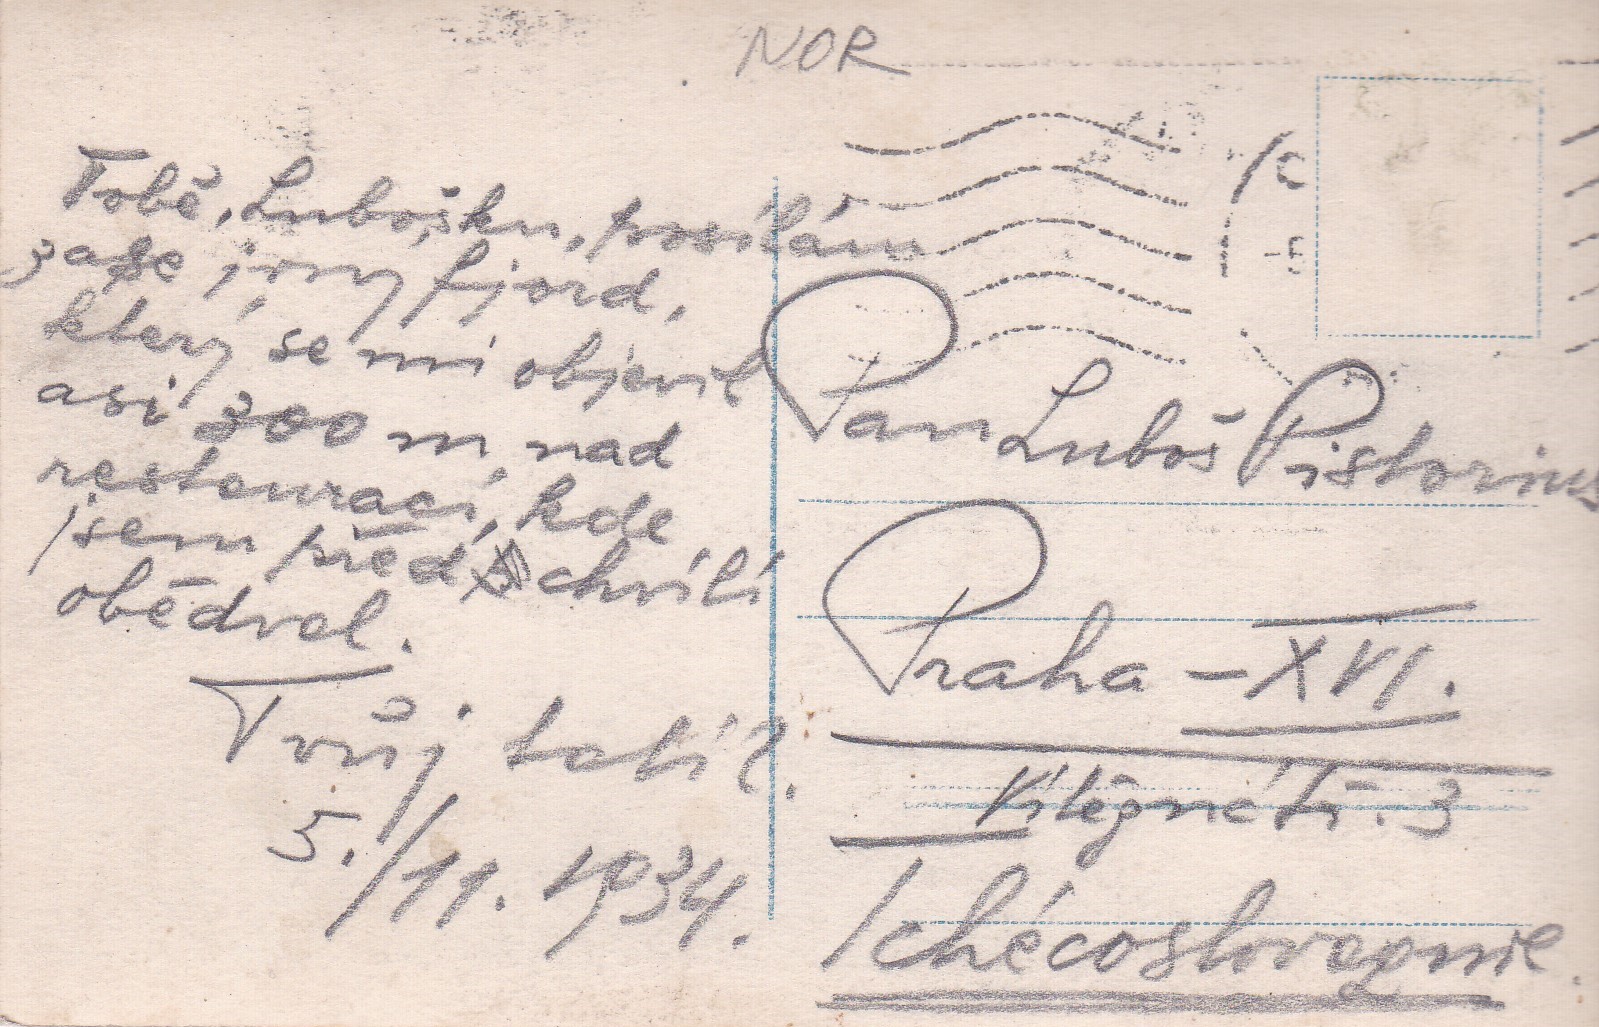 NOR
Tobě, Lubošku, posílám
zase jiný fjord,
který se mi objevil
asi 300 m, nad
restaurací, kde
jsem před chvílí
obědval.
Tvůj tatíč.
5./11. 1934.
Pan Luboš Pistorius
Praha – XVI.
3
Tchécoslovaquie.